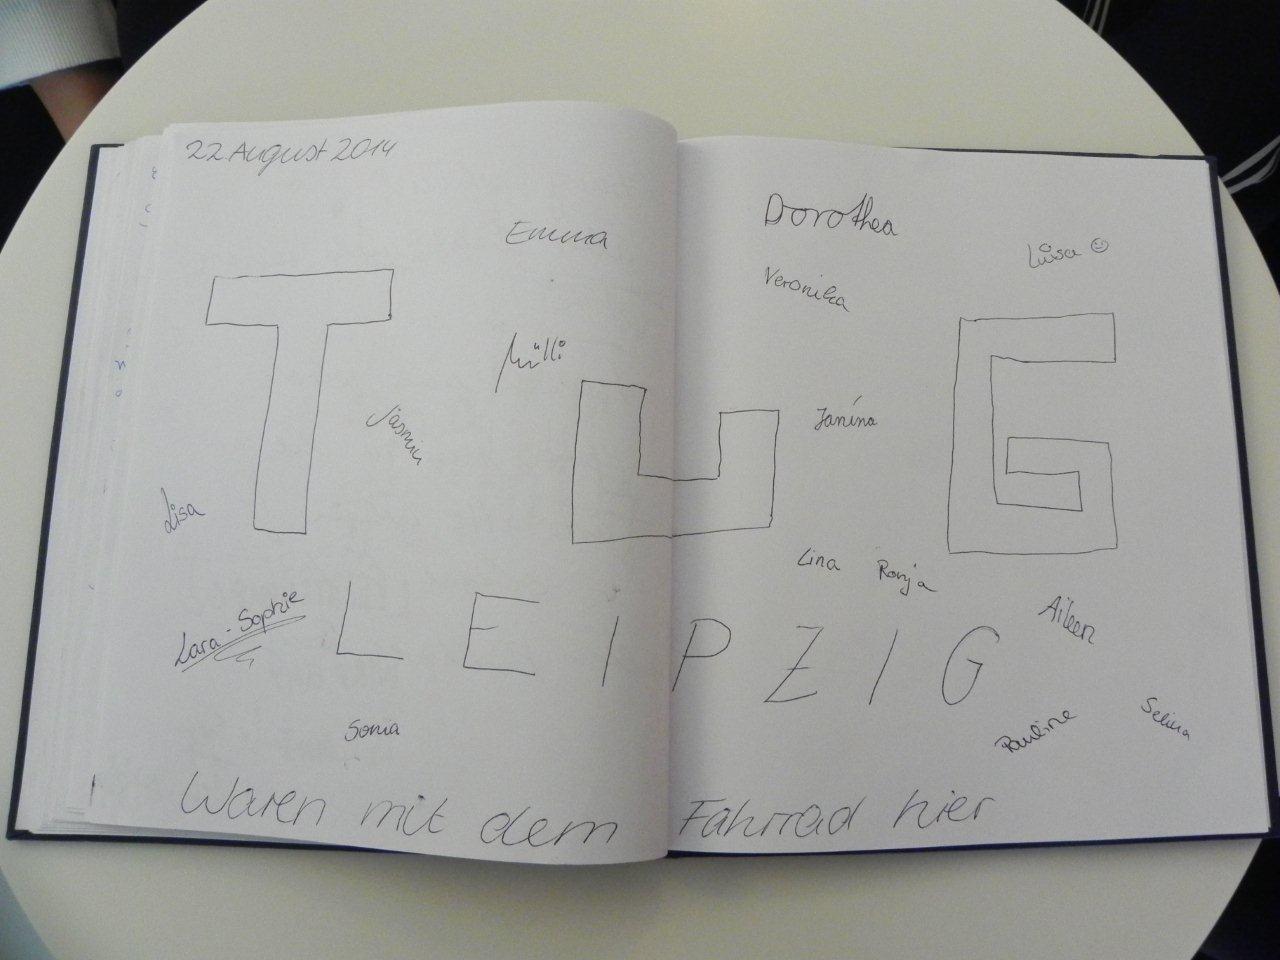 22. August 2014
Emma
Dorothea
Luisa
Veronika
Mülli
Jasmin
Janína
TUG
Lisa
Lina
Ronja
Aileen
Lara-Sophie
LEIPZIG
Pauline
Selina
Sonia
Waren mit dem Fahrrad hier